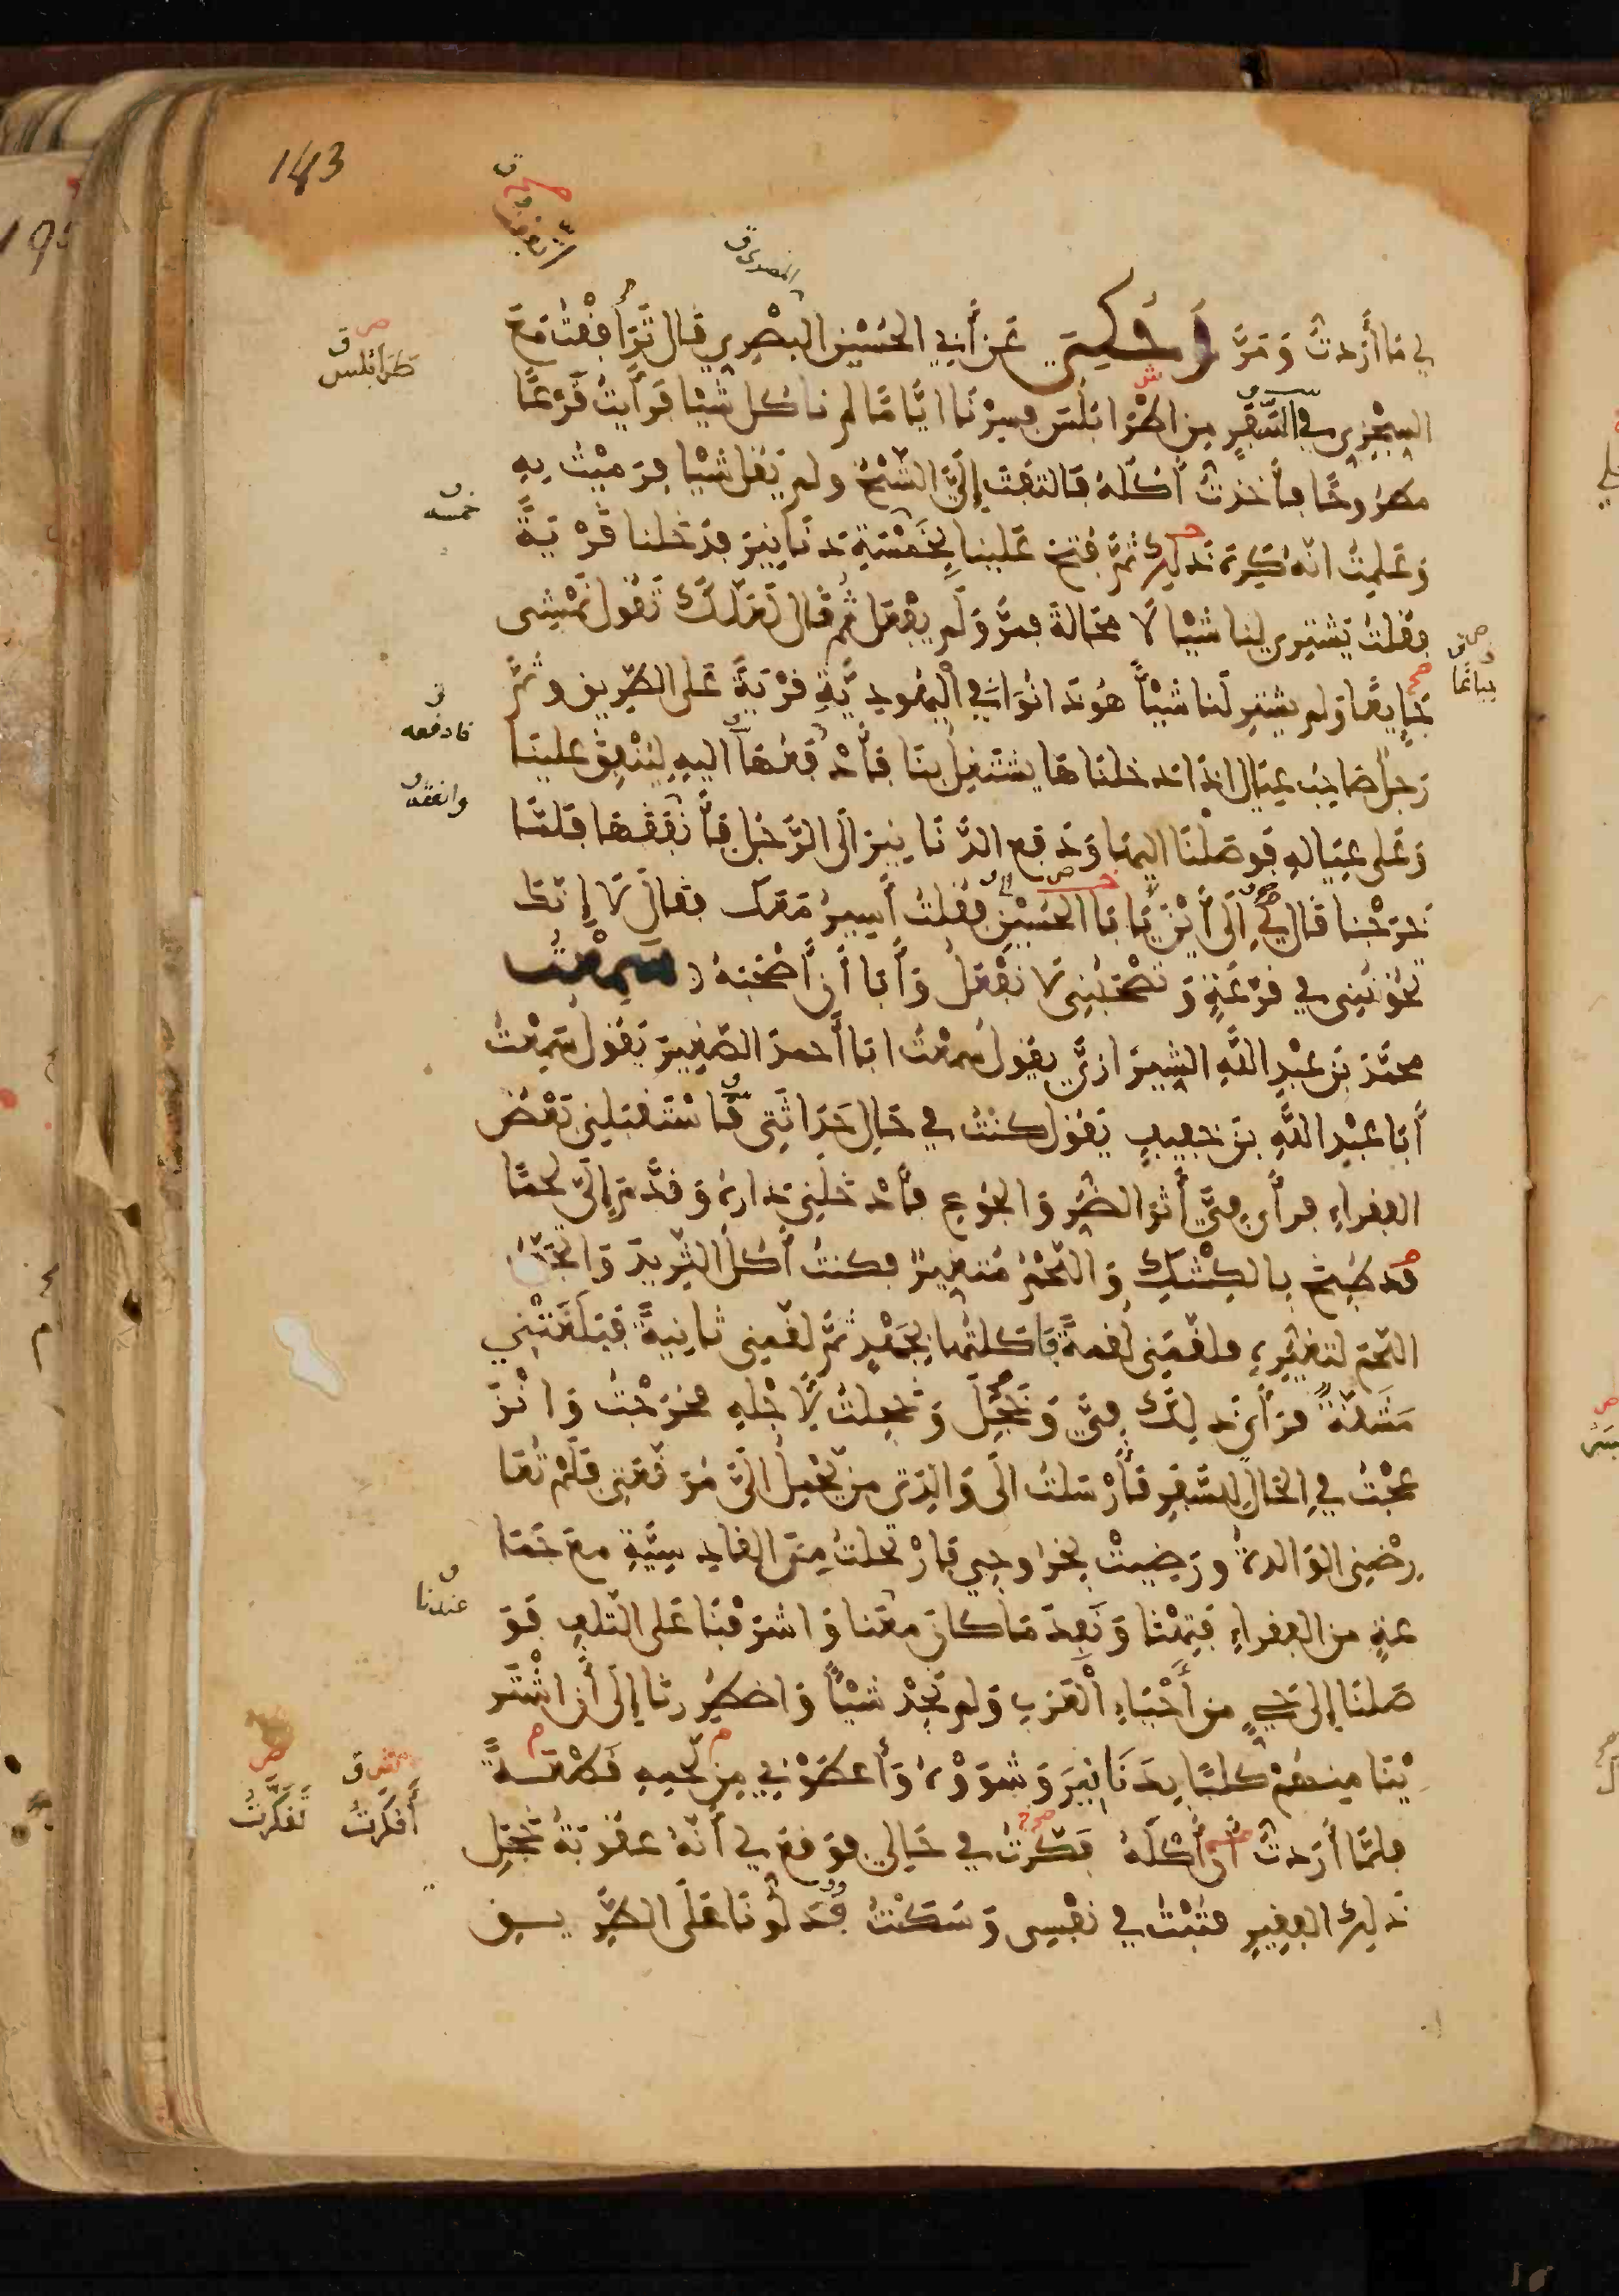 143
لي ما أردت ومر وحكي عن أبي الحسين البصري قال ترافقت مع
السجزي في السفر من اطرابلس فسرنا اياما لم ناكل شيا فرأيت قرعا
مطروحا فأخذت أكله فالتفت إلي الشيخ ولم يقل شيا فرميت به
وعلمت انه كره ذلك ثم فتح علينا بخمسة دنانير فدخلنا قرية
فقلت يشتري لنا شيا لا محالة فمر ولم يفعل ثم قال لعلك تقول نمشي
جياعا ولم يشتر لنا شيأ هو ذا نوافي اليهودية قرية على الطريق وثم
رجل صاحب عيال اذا دخلناها يشتغل بنا فأدفعها اليه لينفق علينا
وعلى عياله فوصلنا اليها ودفع الدنانير الى الرجل فأنفقها فلما
خرجنا قال لي الى أين يا ابا الحسين فقلت أسير معك فقال لا إنك
تخونني في قرعة وتصحبني لا تفعل وأبا أن أصحبه سمعت
محمد بن عبد الله الشيرازي يقول سمعت ابا أحمد الصغير يقول سمعت
أبا عبد الله بن خفيف يقول كنت في حال حداثتي فاستقبلني بعض
الفقراء فرأى في أثر الضر والجوع فأدخلني داره وقدم إلي لحما
قد طبخ بالكشك واللحم متغير فكنت أكل الثريد واتجنب
اللحم لتغيره فلقمني لقمة فاكلتها بجهد ثم لقمني ثانية فبلغتني
مشقة فرأى ذلك في وخجل وخجلت لأجله فخرجت وانز
عجت في الحال للسفر فأرسلت الى والدتي من يحمل الي مرقعتي فلم تعا
رضني الوالدة ورضيت بخروجي فارتحلت من القادسية مع جما
عة من الفقراء فتهنا ونفد ما كان معنا واشرفنا على التلف فو
صلنا إلى حي من أحياء العرب ولم نجد شيأ واضطررنا إلى أن اشتر
ينا منهم كلبا بدنانير وشووه وأعطوني من لحمه قطعة
فلما أردت أن أكله فكرت في حالي فوقع لي أنه عقوبة خجل
ذلك الفقير فتبت في نفسي وسكت فدلونا على الطريق
المصري ق
طرابلس
خمسه
فادفعه
وانفقه
جياعا
عندنا
أفكرت
تفكرت